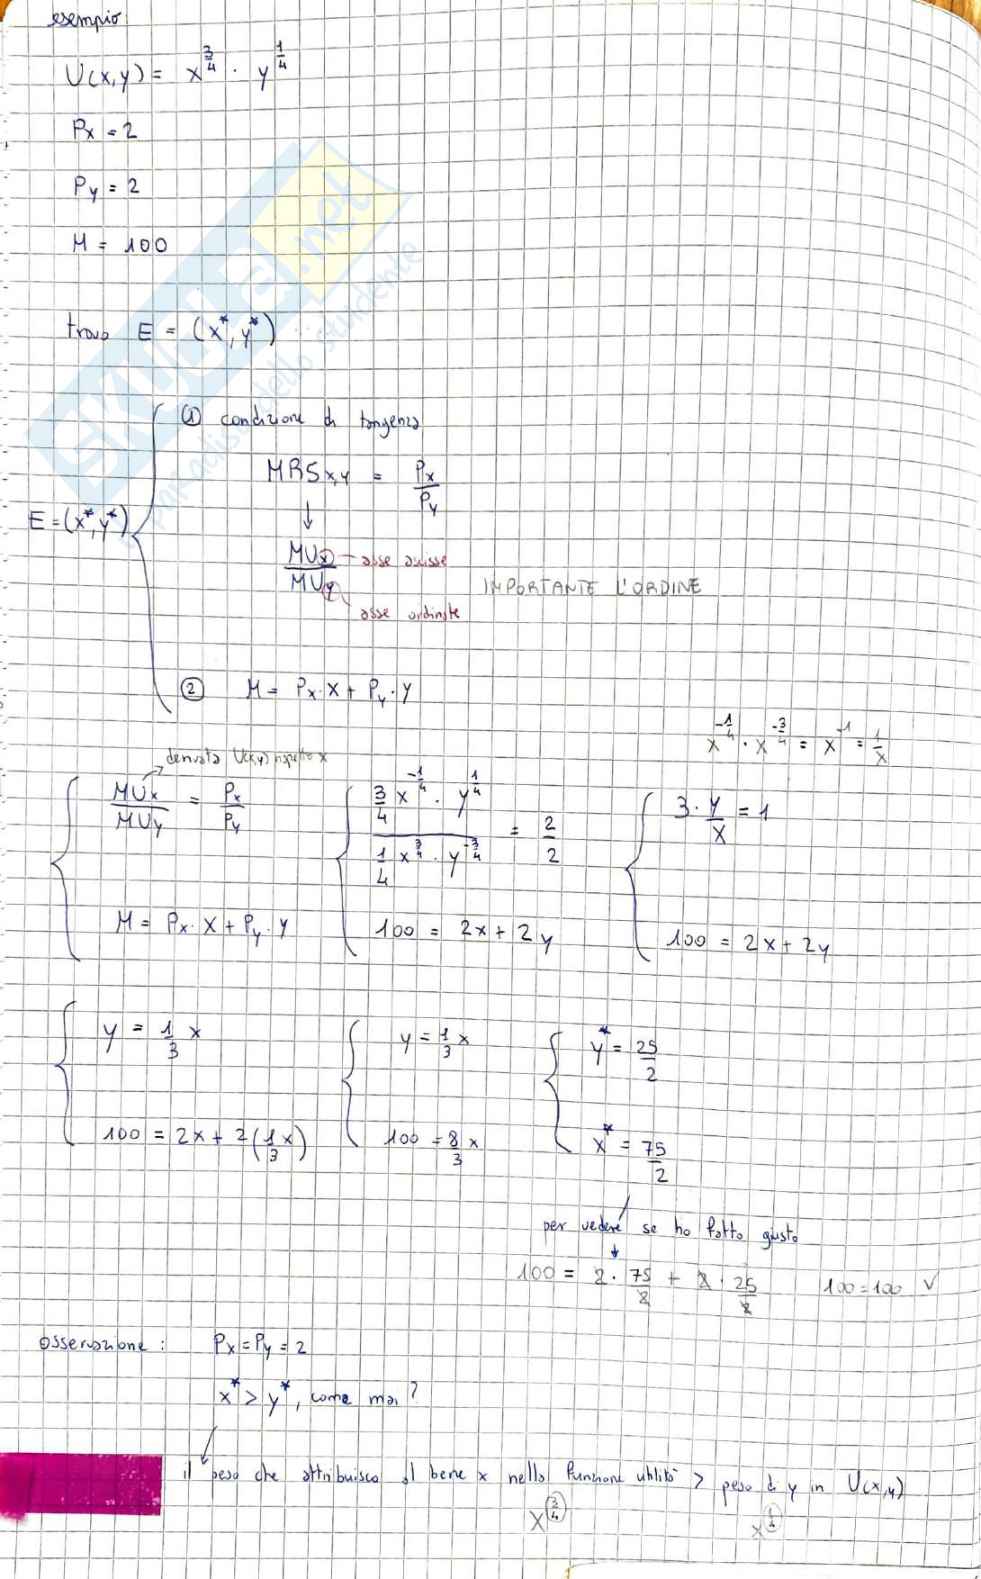 esempio:
U(x,y) = x^{3/4} · y^{1/4}
Px = 2
Py = 2
M = 100
trovo E = (x*, y*)
① condizione di tangenza
MRS x,y = Px/Py
↓
E = (x*, y*)
MUx/MUy
asse ascisse
asse ordinate
IMPORTANTE L'ORDINE
② M = Px·X + Py·Y
x^{-1/4} · x^{-3/4} = x^{-1} = 1/x
derivata U(x,y) rispetto x
MUx/MUy = Px/Py
(3/4 x^{-1/4} · y^{1/4}) / (1/4 x^{3/4} · y^{-3/4}) = 2/2
3 · y/x = 1
M = Px·X + Py·Y
100 = 2x + 2y
100 = 2x + 2y
y = 1/3 x
y = 1/3 x
y* = 25/2
100 = 2x + 2(1/3 x)
100 = 8/3 x
x* = 75/2
per vedere se ho fatto giusto
↓
100 = 2 · 75/2 + 2 · 25/2 100 = 100 √
osservazione: Px = Py = 2
x* > y*, come mai?
il peso che attribuisco al bene x nella funzione utilità > peso di y in U(x,y)
x^{3/4} x^{1/4}
skuola.net
paradiso dello studente